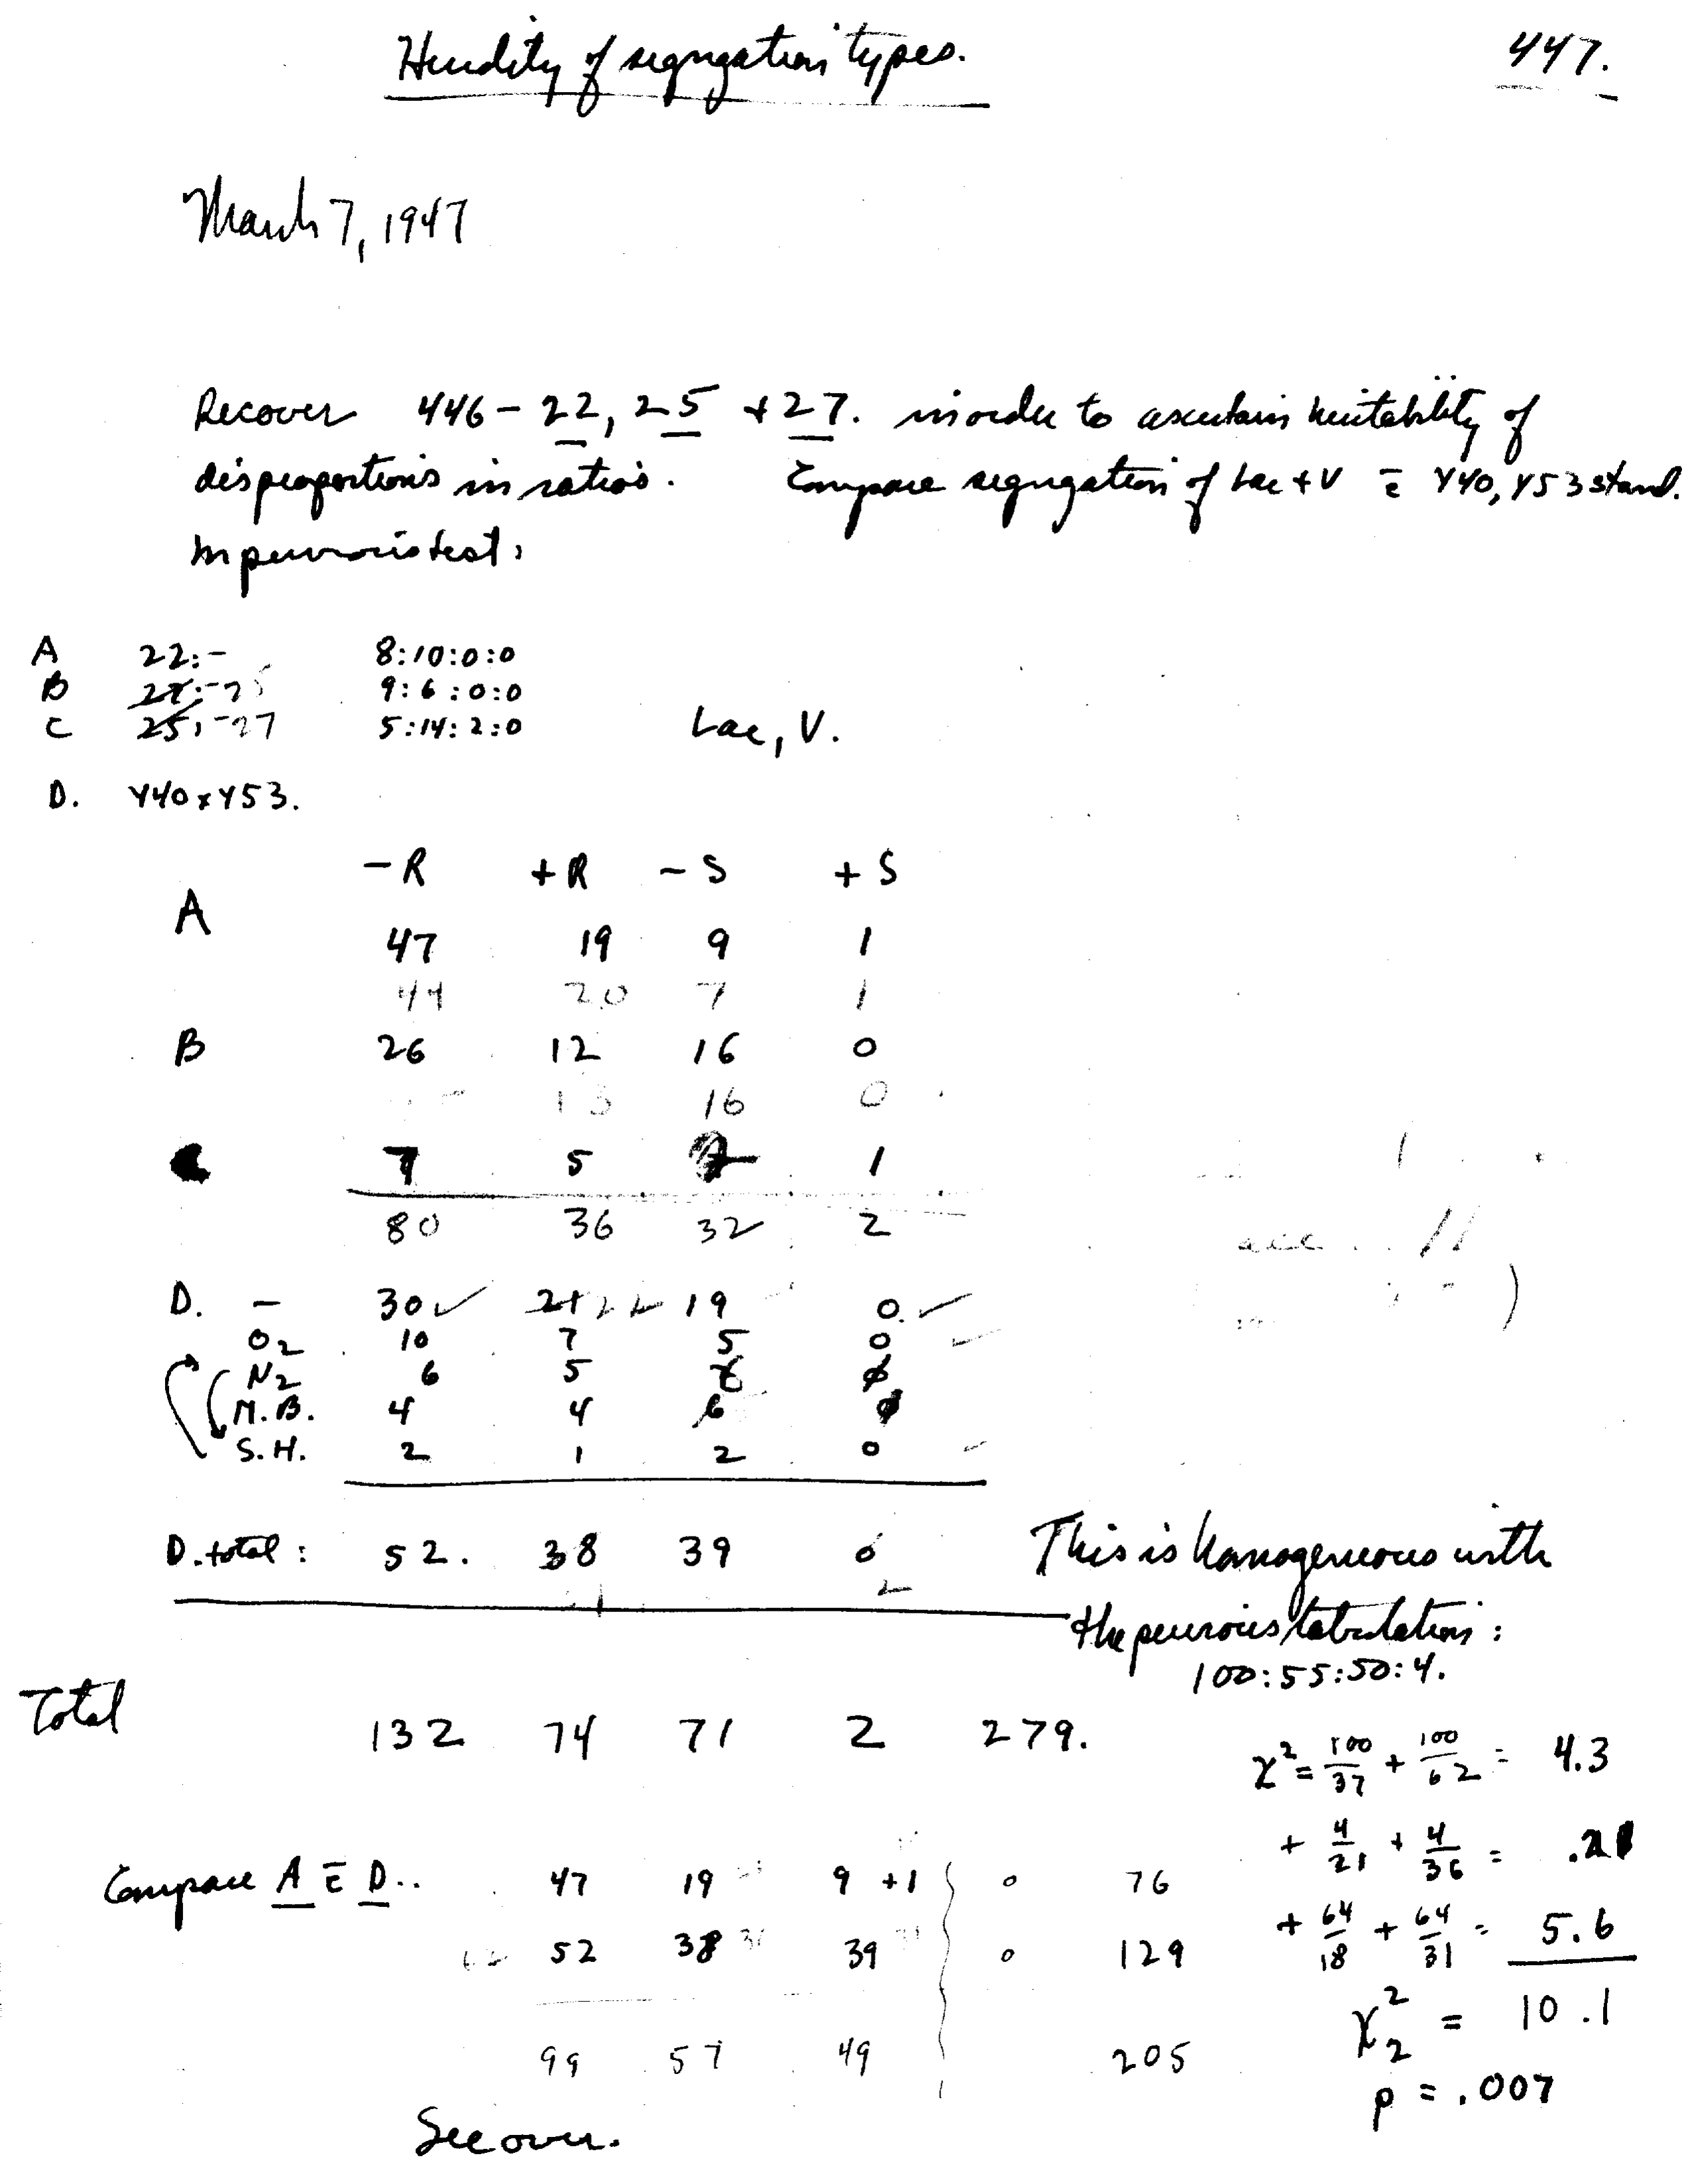 Heredity of segregation types.
447.
March 7, 1947
Recover 446-22, 25 + 27. in order to ascertain heritability of
disproportions in ratios. Compare segregation of Lac + V c̄ Y40, Y53 stand.
In previous test:
A 22:- 8:10:0:0
B 25 9:6:0:0
C 25, -27 5:14:2:0 Lac, V.
D. Y40 x Y53.
-R +R -S +S
A
47 19 9 1
44 20 7 1
B 26 12 16 0
13 16 0
C 7 5 7 1
80 36 32 2
D. - 30 ✓ 21 22 19 0 ✓
O2 10 7 5 0
N2 6 5 6 0
M.B. 4 4 6 0
S.H. 2 1 2 0
D. total: 52. 38 39 0
2
This is homogeneous with
the previous tabulation:
100:55:50:4.
Total 132 74 71 2 279.
χ² = 100/37 + 100/62 = 4.3
+ 4/21 + 4/36 = .21
+ 64/18 + 64/31 = 5.6
χ²₂ = 10.1
p = .007
Compare A c̄ D..
47 19 9 +1 0 76
52 38 39 0 129
99 57 49 205
See over.